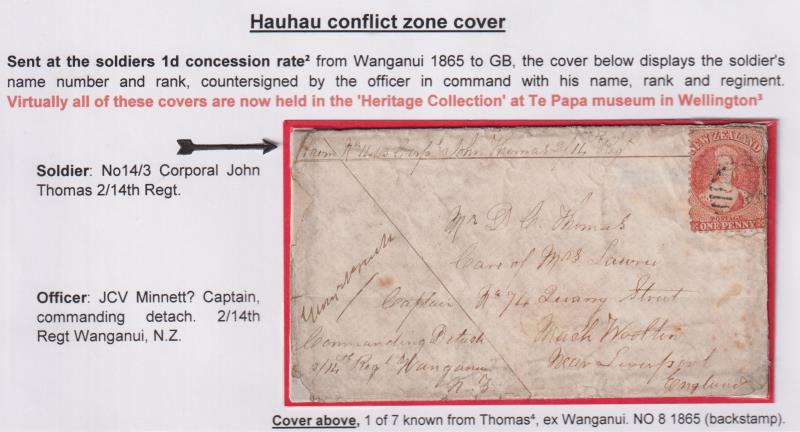 Hauhau conflict zone cover
Sent at the soldiers 1d concession rate² from Wanganui 1865 to GB, the cover below displays the soldier's
name number and rank, countersigned by the officer in command with his name, rank and regiment.
Virtually all of these covers are now held in the 'Heritage Collection' at Te Papa museum in Wellington³
Soldier: No14/3 Corporal John
Thomas 2/14th Regt.
Officer: JCV Minnett? Captain,
commanding detach. 2/14th
Regt Wanganui, N.Z.
From No 14/3 Corpl John Thomas 2/14 Regt
NEW ZEALAND
POSTAGE
ONE PENNY
Mr D. C. Thomas
Care of Mrs Lawru
No 74 Quarry Street
Much Woolton
Near Liverpool
England
Captain
Commanding Detach
2/14th Regt Wanganui
N. Z
Cover above, 1 of 7 known from Thomas⁴, ex Wanganui. NO 8 1865 (backstamp).